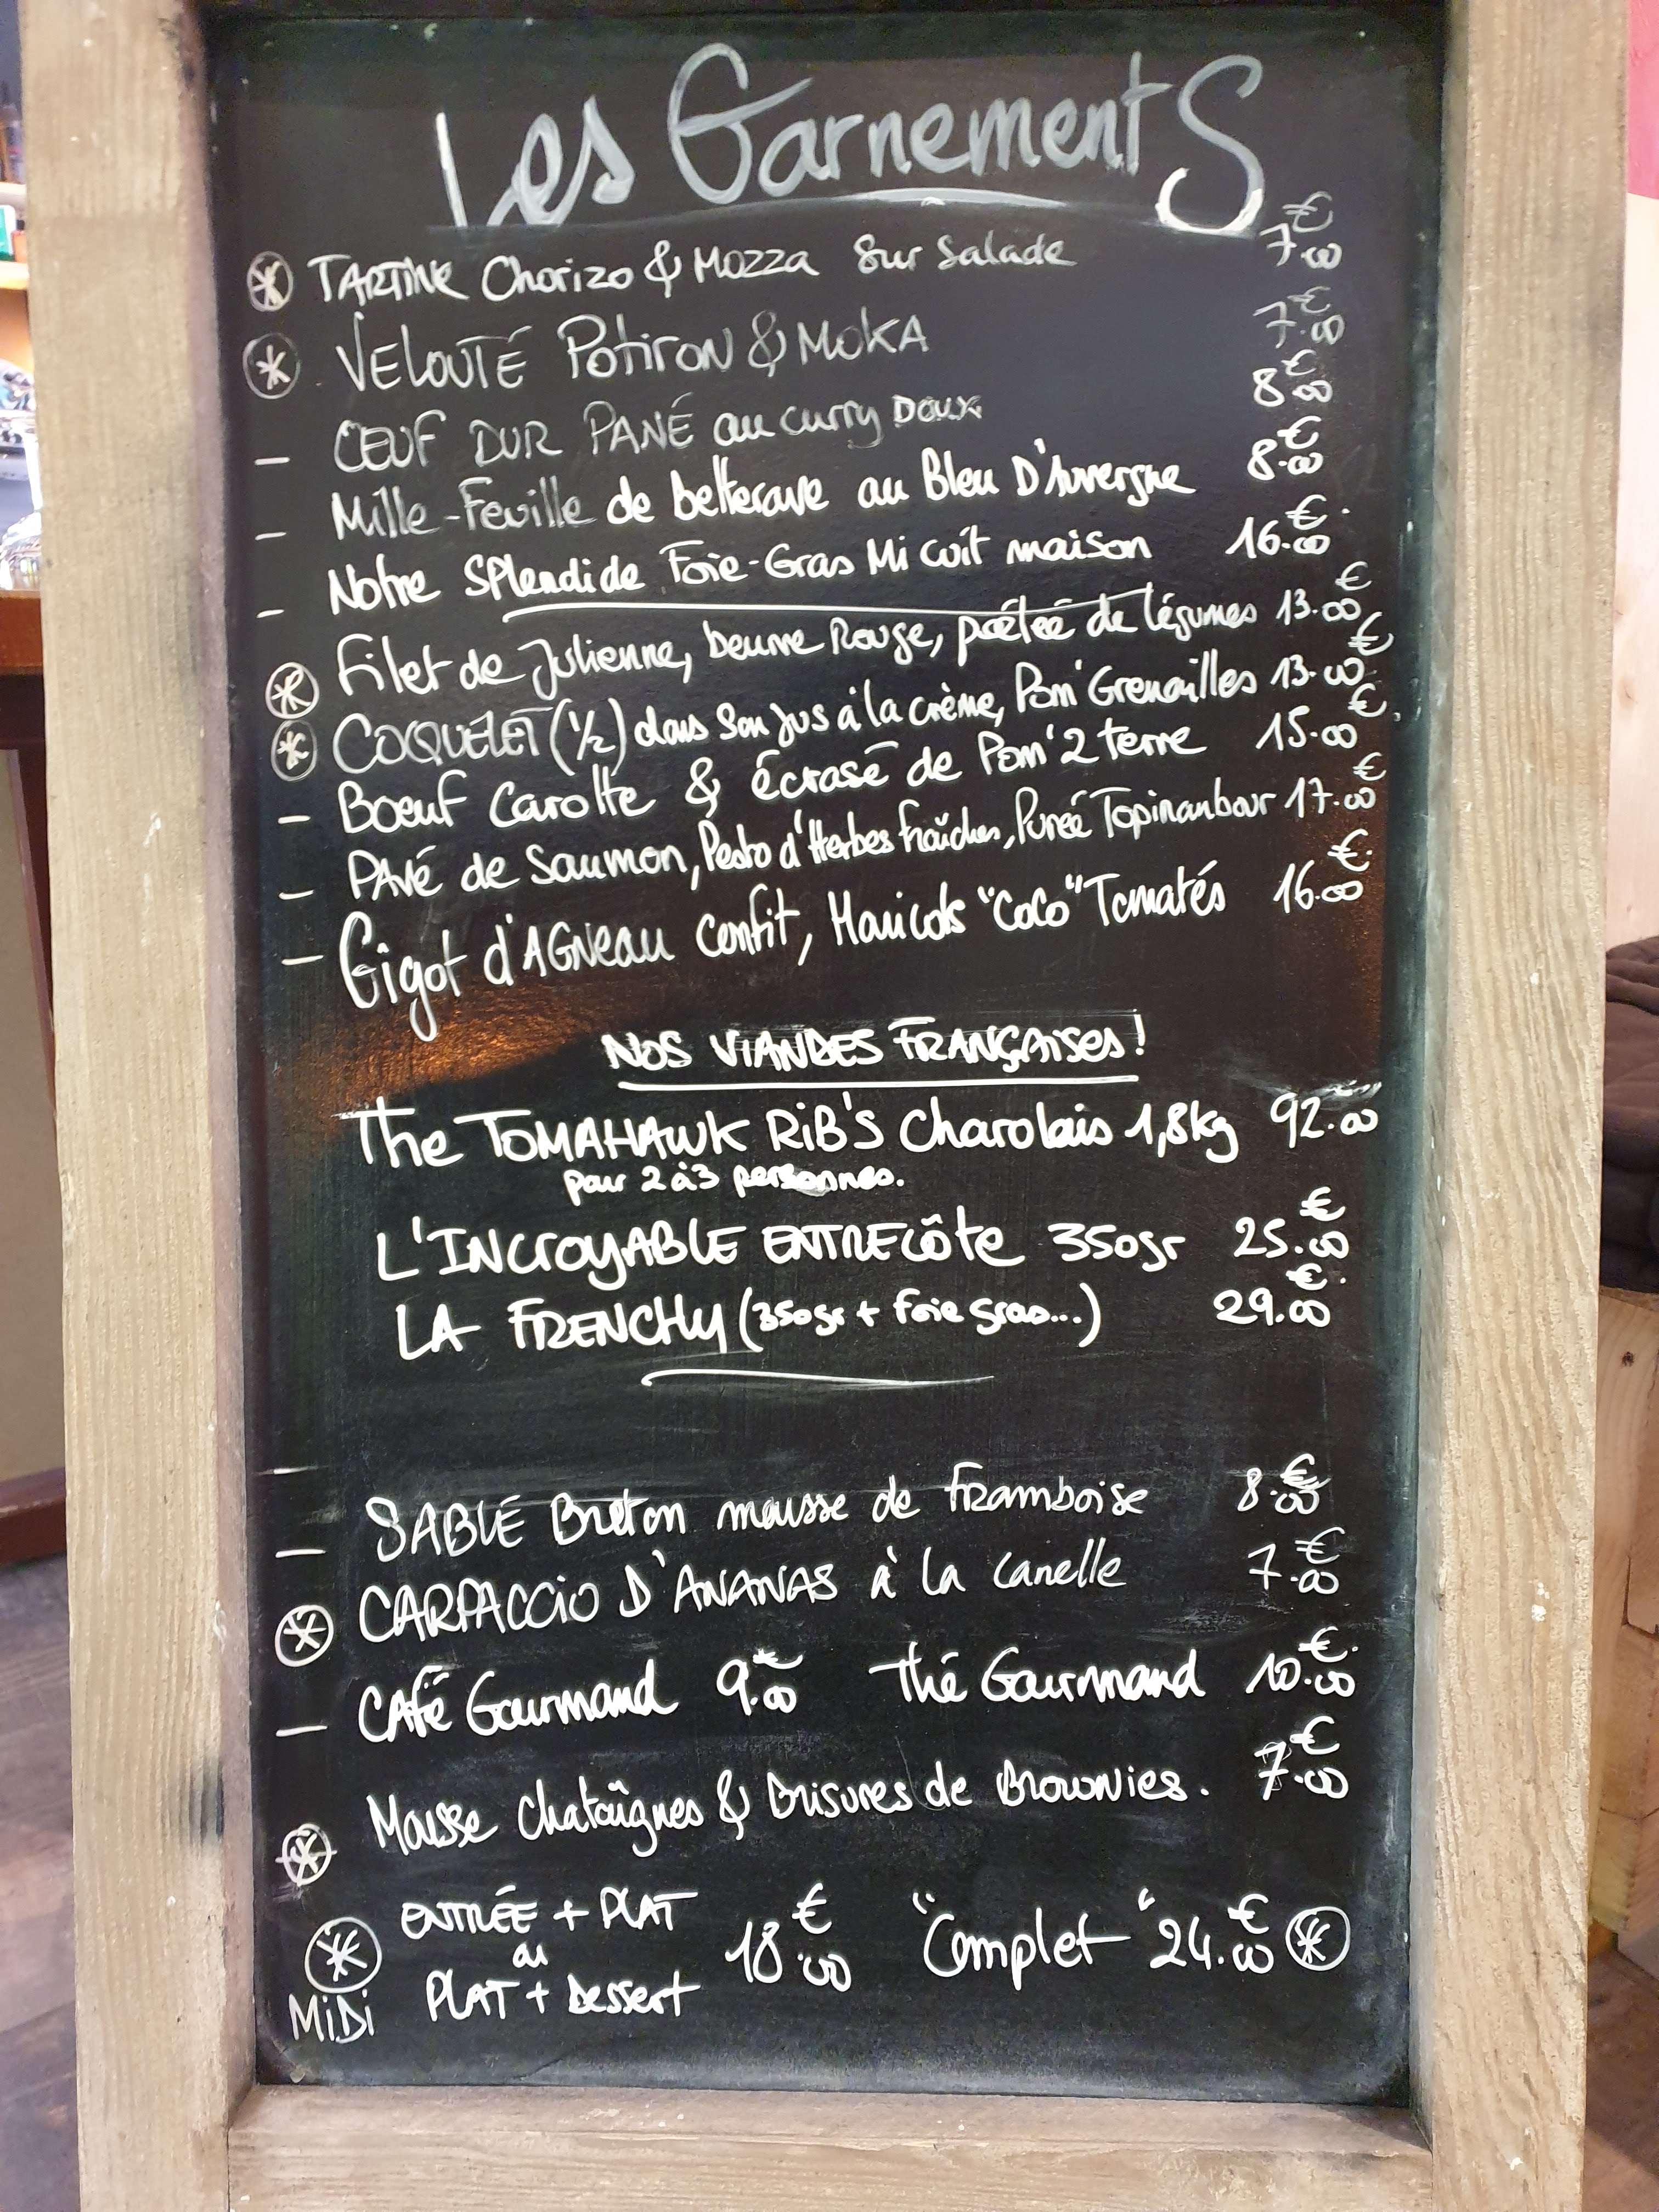 Les Garnements
TARTINE Chorizo & Mozza Sur Salade 7.00€
VELOUTÉ Potiron & MOKA 7.00€
- ŒUF DUR PANÉ au curry Doux 8.00€
- Mille-Feuille de betterave au Bleu D'Auvergne 8.00€
- Notre Splendide Foie-Gras Mi cuit maison 16.00€
Filet de Julienne, beurre Rouge, poêlée de légumes 13.00€
COQUELET (1/2) dans Son Jus à la crème, Pom' Grenailles 13.00€
- Boeuf Carotte & écrasé de Pom' 2 terre 15.00€
- PAVÉ de Saumon, Pesto d'Herbes fraîches, Purée Topinanbour 17.00€
- Gigot d'AGNeau confit, Haricots "Coco" Tomatés 16.00€
NOS VIANDES FRANÇAISES!
The TOMAHAWK RiB'S Charolais 1,8kg 92.00
pour 2 à 3 personnes.
L'INCROYABLE ENTRECôte 350gr 25.00€
LA FRENCHY (350gr + foie gras...) 29.00€
- SABLÉ Breton mousse de framboise 8.00€
CARPACCiO D'ANANAS à la canelle 7.00€
- CAFé Gourmand 9.00€ thé Gourmand 10.00€
Mousse Chataîgnes & Brisures de Brownies. 7.00€
ENTRÉE + PLAT
ou 18.00€ "Complet" 24.00€
MiDi PLAT + Dessert